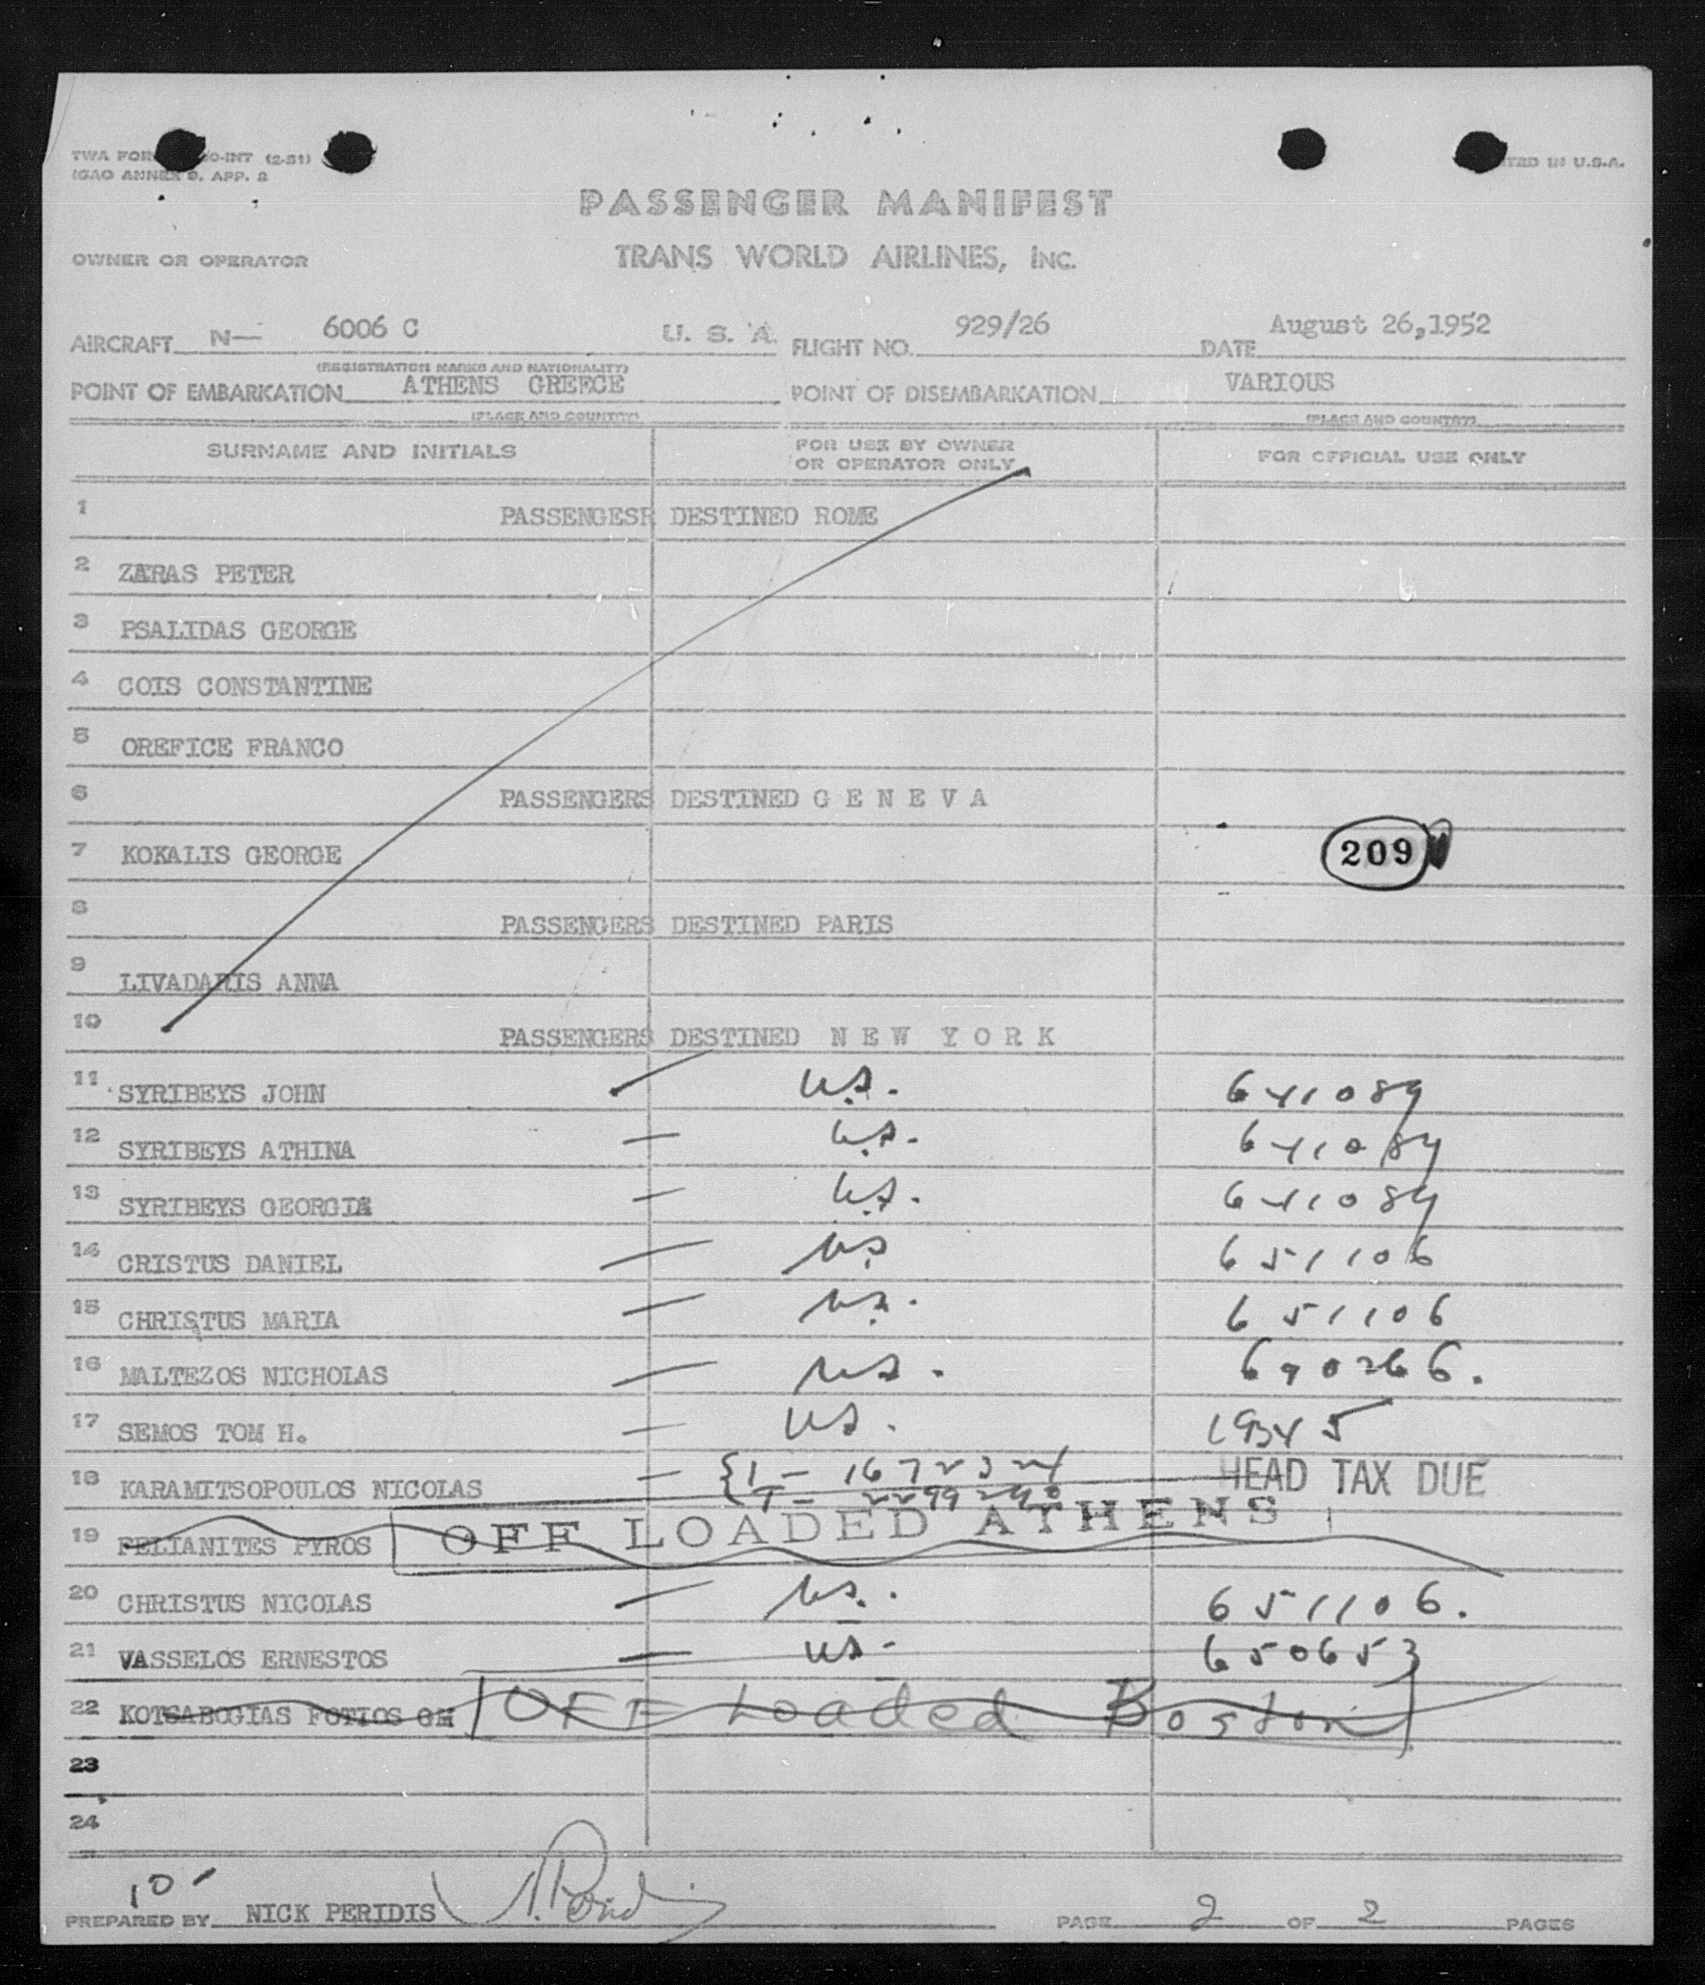 TWA FOR 0-INT (2-51)
ICAO ANNEX 9, APP. 2
TED IN U.S.A.
PASSENGER MANIFEST
OWNER OR OPERATOR TRANS WORLD AIRLINES, INC.
AIRCRAFT N— 6006 C U. S. A. FLIGHT NO. 929/26 DATE August 26,1952
(REGISTRATION MARKS AND NATIONALITY)
POINT OF EMBARKATION ATHENS GREECE POINT OF DISEMBARKATION VARIOUS
(PLACE AND COUNTRY) (PLACE AND COUNTRY)
SURNAME AND INITIALS FOR USE BY OWNER OR OPERATOR ONLY FOR OFFICIAL USE ONLY
1 PASSENGESR DESTINED ROME
2 ZARAS PETER
3 PSALIDAS GEORGE
4 COIS CONSTANTINE
5 OREFICE FRANCO
6 PASSENGERS DESTINED G E N E V A
7 KOKALIS GEORGE 209
8 PASSENGERS DESTINED PARIS
9 LIVADARIS ANNA
10 PASSENGERS DESTINED N E W Y O R K
11 SYRIBEYS JOHN — U.S. 641089
12 SYRIBEYS ATHINA — U.S. 641089
13 SYRIBEYS GEORGIA — U.S. 641089
14 CRISTUS DANIEL — U.S 651106
15 CHRISTUS MARIA — U.S. 651106
16 MALTEZOS NICHOLAS — U.S. 690266.
17 SEMOS TOM H. — U.S. 19345
18 KARAMITSOPOULOS NICOLAS — HEAD TAX DUE
19 PELIANITES PYROS OFF LOADED ATHENS
20 CHRISTUS NICOLAS — U.S. 651106.
21 VASSELOS ERNESTOS — U.S. 650653
22 KOTSABOGIAS FOTIOS GH OFF Loaded Boston
23
24
10
PREPARED BY NICK PERIDIS N. Peridis PAGE 2 OF 2 PAGES